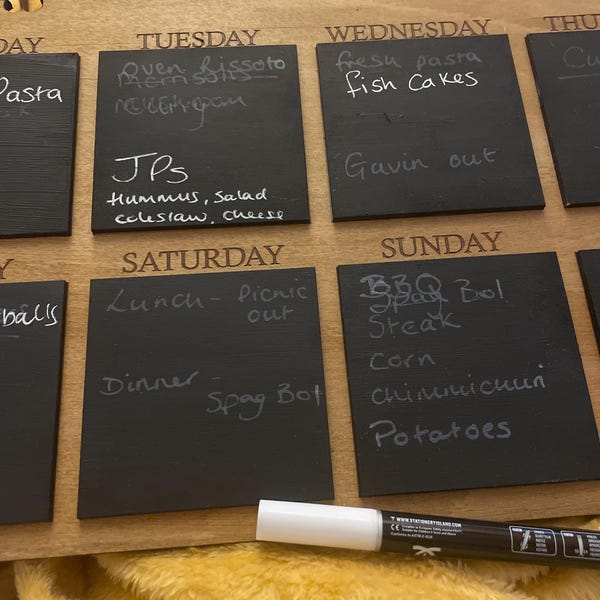 DAY
TUESDAY
WEDNESDAY
THU
Pasta
Oven Rissoto
Morrisons
fresh pasta
fish Cakes
Gavin out
Cu
JPs
Hummus, Salad
coleslaw, cheese
Y
SATURDAY
SUNDAY
balls
Lunch - Picnic
out
Dinner -
Spag Bol
BBQ
Spag Bol
Steak
Corn
chimmichuri
Potatoes
WWW.STATIONERYISLAND.COM
CE